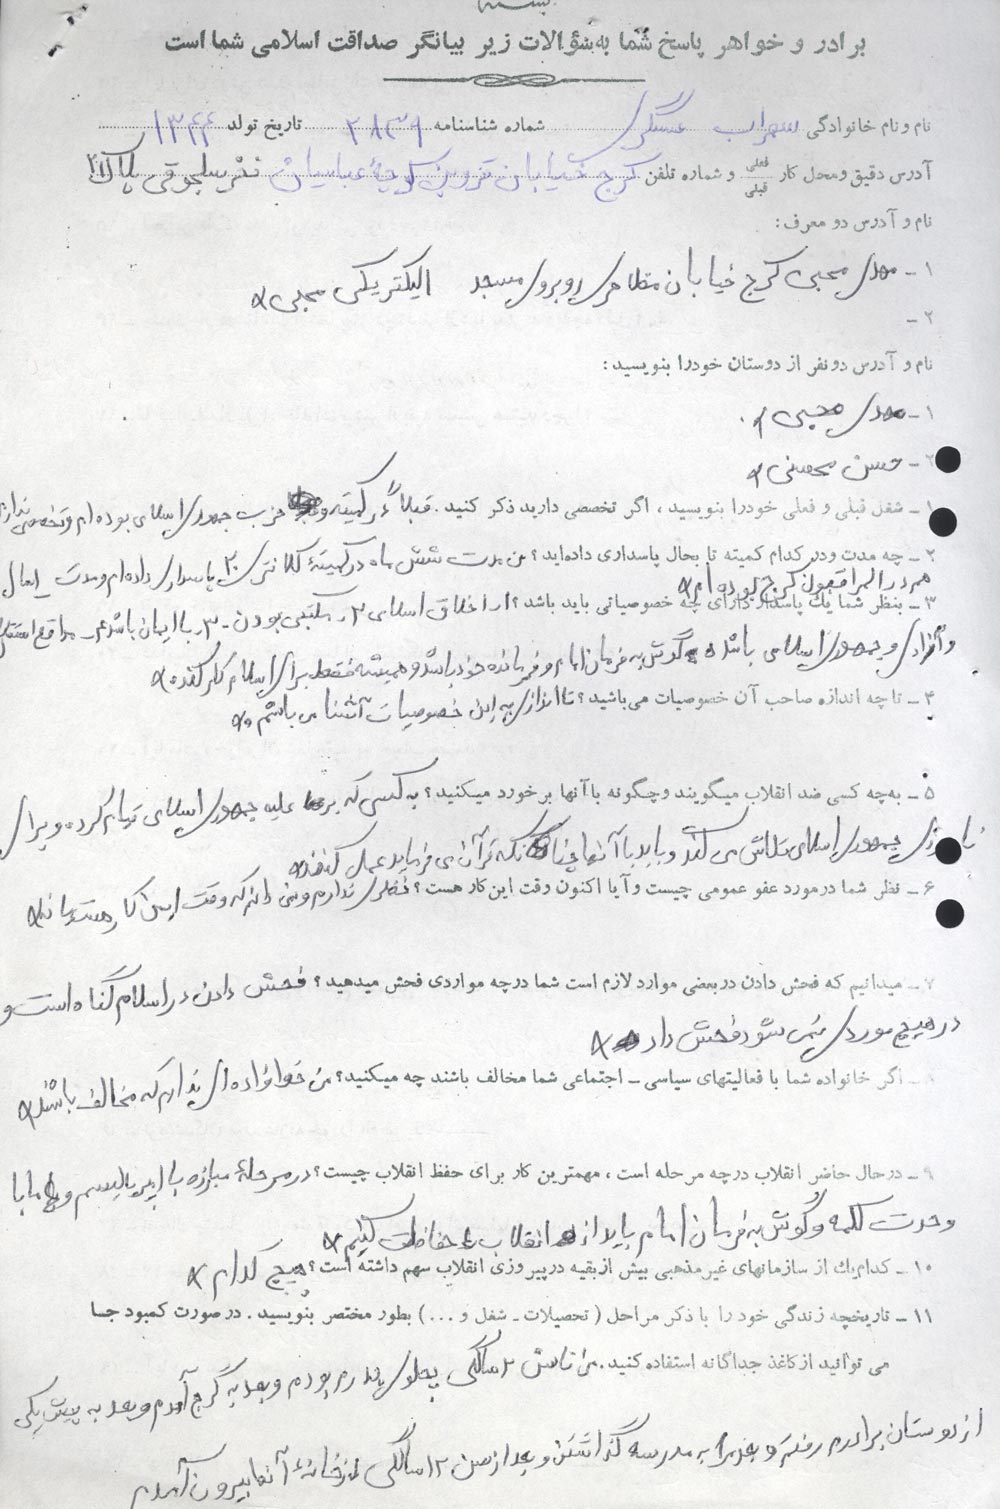 بسمه
برادر و خواهر پاسخ شما به سؤالات زیر بیانگر صداقت اسلامی شما است
نام و نام خانوادگی سهراب عسگری شماره شناسنامه ۲۸۳۹ تاریخ تولد ۱۳۴۴
آدرس دقیق و محل کار فعلی قبلی و شماره تلفن کرج خیابان قزوین کوچهٔ عباسیان پلاک
نام و آدرس دو معرف :
۱ - مهدی محبی کرج خیابان روبروی مسجد الکتریکی محبی
۲ -
نام و آدرس دو نفر از دوستان خود را بنویسید :
۱ - مهدی محبی
۲ - حسن محسنی
۱ - شغل قبلی و فعلی خود را بنویسید ، اگر تخصصی دارید ذکر کنید . قبلاً در کمیته و حزب جمهوری اسلامی بوده‌ام و تخصصی ندارم
۲ - چه مدت و در کدام کمیته تا بحال پاسداری داده‌اید ؟ من مدت شش ماه در کمیتهٔ کلانتری ۲۰ پاسداری داده‌ام و مدت یکسال
هم در کرج بوده‌ام
۳ - بنظر شما یك پاسدار دارای چه خصوصیاتی باید باشد ؟ ۱ر اخلاق اسلامی ۲ر مکتبی بودن - ۳ر باایمان باشد ۴ر مدافع استقلال
و آزادی و جمهوری اسلامی باشد گوش به فرمان امام و فرمانده خود باشد و همیشه فقط برای اسلام کار کند
۴ - تا چه اندازه صاحب آن خصوصیات می‌باشید ؟ تا اندازی به این خصوصیات آشنا می باشم
۵ - به چه کسی ضد انقلاب میگویند و چگونه با آنها برخورد میکنید ؟ به کسی که علیه جمهوری اسلامی قیام کرده و برای
نابودی جمهوری اسلامی تلاش می کند و باید با آنها چنانکه قرآن می فرماید عمل کنند
۶ - نظر شما در مورد عفو عمومی چیست و آیا اکنون وقت این کار هست ؟ نظری ندارم و نمی دانم که وقت این کار هست یا نه
۷ - میدانیم که فحش دادن در بعضی موارد لازم است شما در چه مواردی فحش میدهید ؟ فحش دادن در اسلام گناه است و
در هیچ موردی نمی شود فحش داد
۸ - اگر خانواده شما با فعالیتهای سیاسی - اجتماعی شما مخالف باشند چه میکنید ؟ من خوانواده‌ای ندارم که مخالف باشند
۹ - در حال حاضر انقلاب در چه مرحله است ، مهمترین کار برای حفظ انقلاب چیست ؟ در مرحلهٔ مبارزه با امپریالیسم و ما با
وحدت کلمه و گوش به فرمان امام باید از انقلاب حفاظت کنیم
۱۰ - کدامیك از سازمانهای غیر مذهبی بیش از بقیه در پیروزی انقلاب سهم داشته است ؟ هیچ کدام
۱۱ - تاریخچه زندگی خود را با ذکر مراحل ( تحصیلات - شغل و ... ) بطور مختصر بنویسید . در صورت کمبود جا
می توانید از کاغذ جداگانه استفاده کنید . من تا سن سالگی پهلوی پدرم بودم و بعد به کرج آمدم و بعد به پیش یکی
از دوستان برادرم رفتم و بعد مرا به مدرسه گذاشتن و بعد از سن ۱۲ سالگی از خانهٔ آنها بیرون آمدم